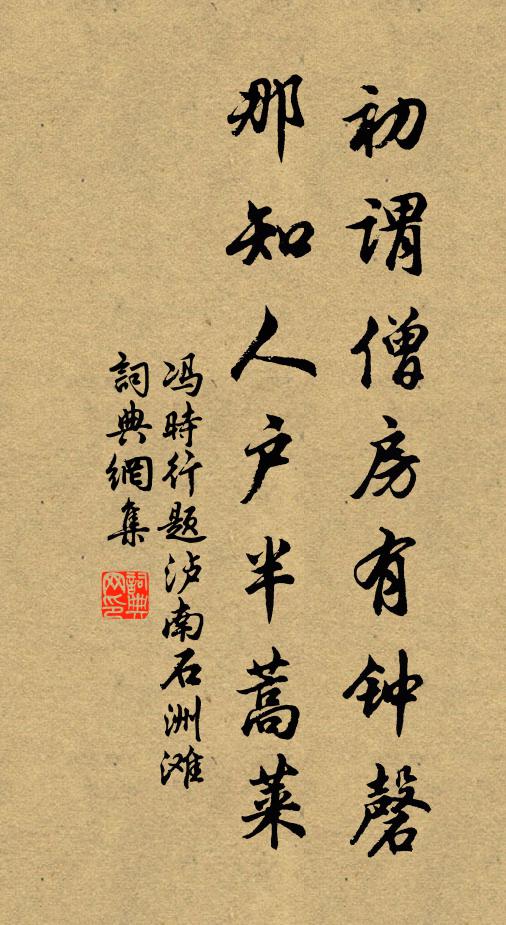 初谓僧房有钟磬
那知人户半蒿莱
冯時行题泸南石洲滩
詞典網集
詞典网印